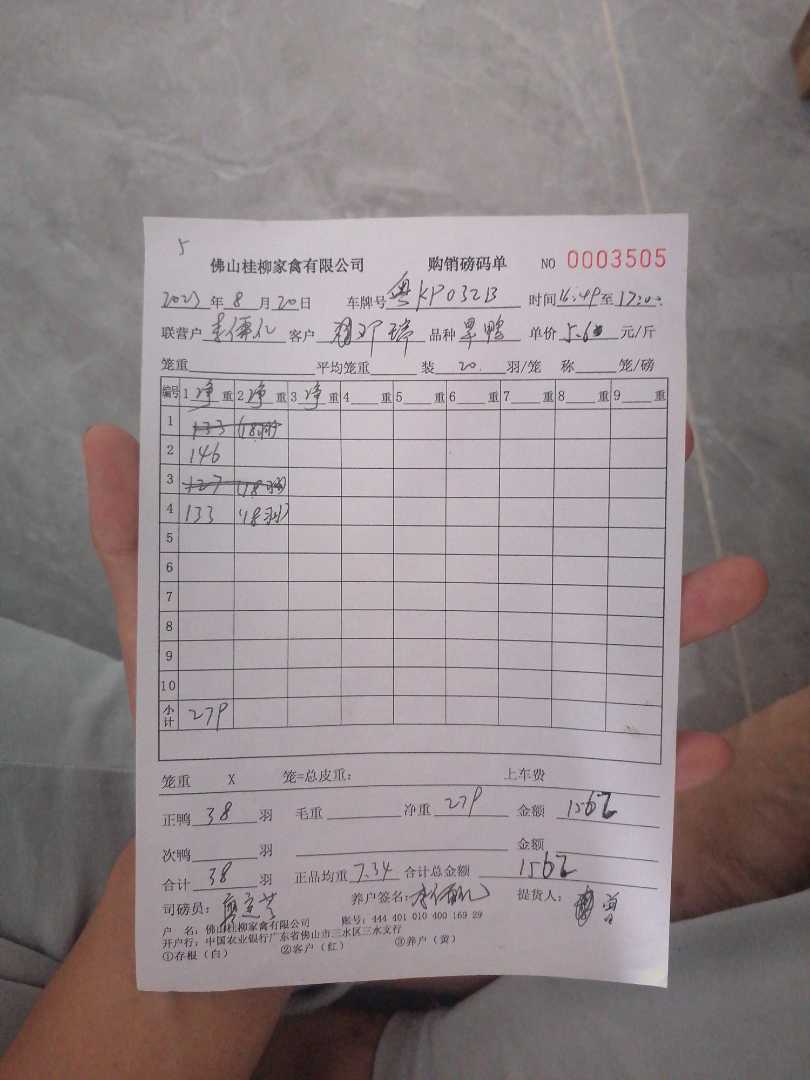 5
佛山桂柳家禽有限公司 购销磅码单 NO 0003505
2023年8月20日 车牌号 粤KP032B 时间 16:49至17:00
联营户 李 客户 邓瑞 品种 旱鸭 单价 5.60 元/斤
笼重 平均笼重 装 20. 羽/笼 称 笼/磅
编号 1 净 重 2 净 重 3 净 重 4 重 5 重 6 重 7 重 8 重 9 重
1 133 (18羽)
2 146
3 127 (18羽)
4 133 (18羽)
5
6
7
8
9
10
小计 279
笼重 X 笼=总皮重: 上车费
正鸭 38 羽 毛重 净重 279 金额 1562
次鸭 羽 金额
合计 38 羽 正品均重 7.34 合计总金额 1562
司磅员: 养户签名: 提货人:
户 名: 佛山桂柳家禽有限公司 账号: 444 401 010 400 169 29
开户行: 中国农业银行广东省佛山市三水区三水支行
①存根(白) ②客户(红) ③养户(黄)